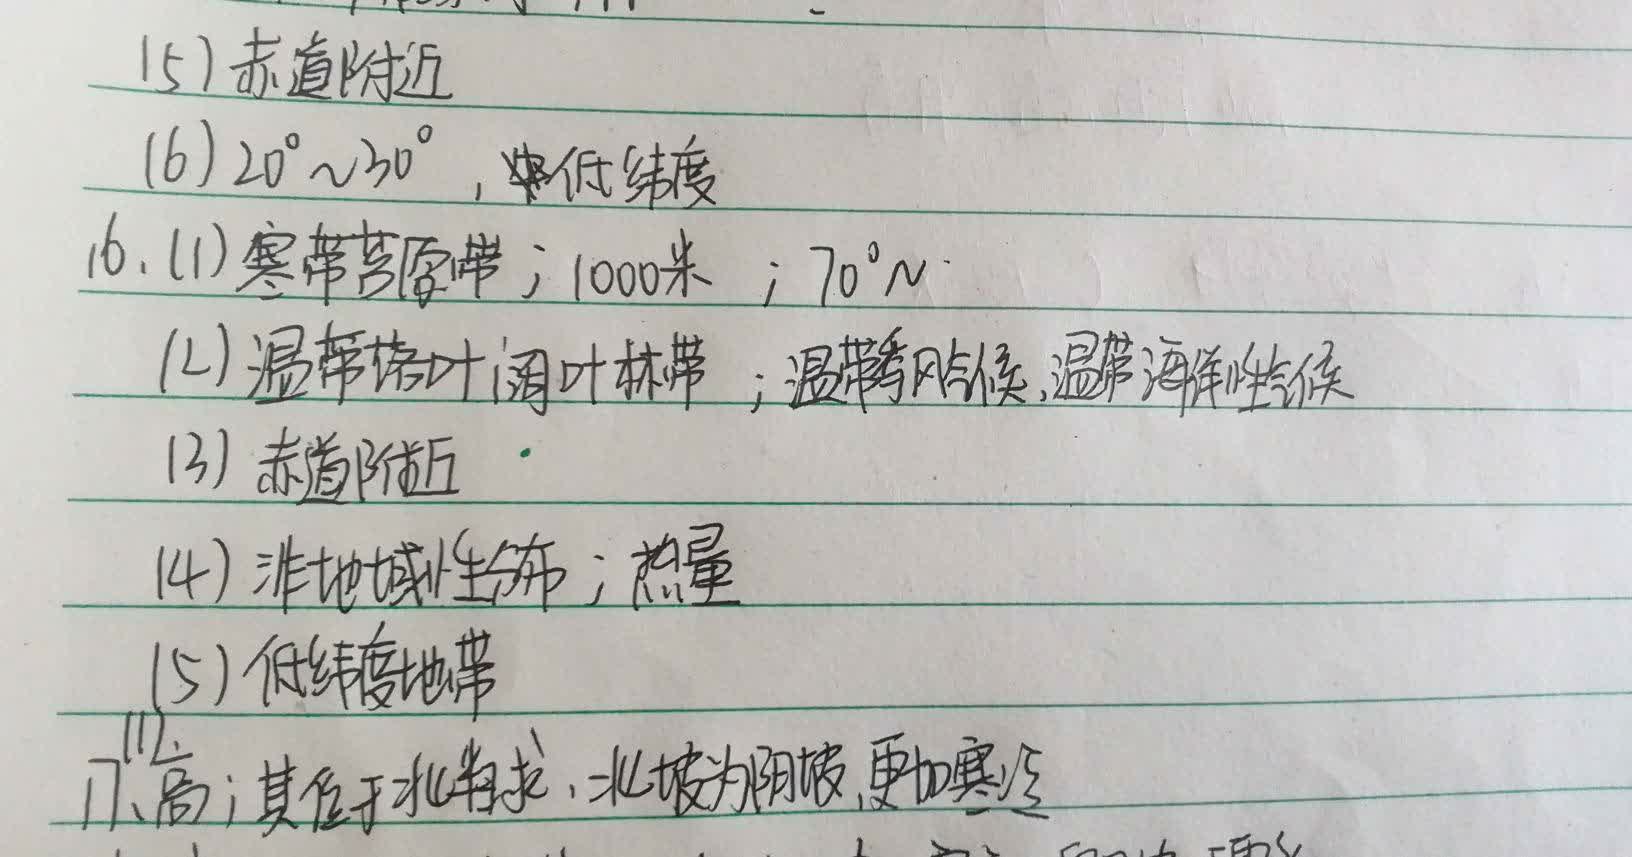 (5)赤道附近
(6)20°~30°,低纬度
16.(1)寒带苔原带;1000米;70°N
(2)温带落叶阔叶林带;温带季风气候、温带海洋性气候
(3)赤道附近
(4)非地域性分布;热量
(5)低纬度地带
17.(1)高;其位于北半球,北坡为阴坡,更加寒冷